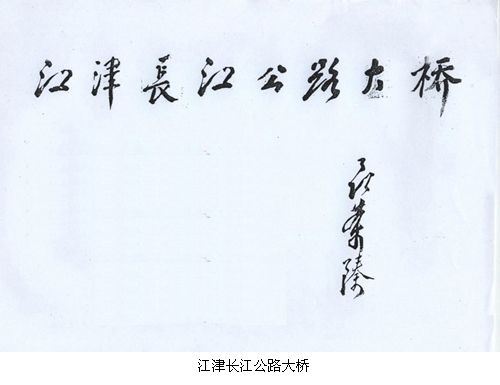 江津長江公路大桥
聂荣臻
江津长江公路大桥